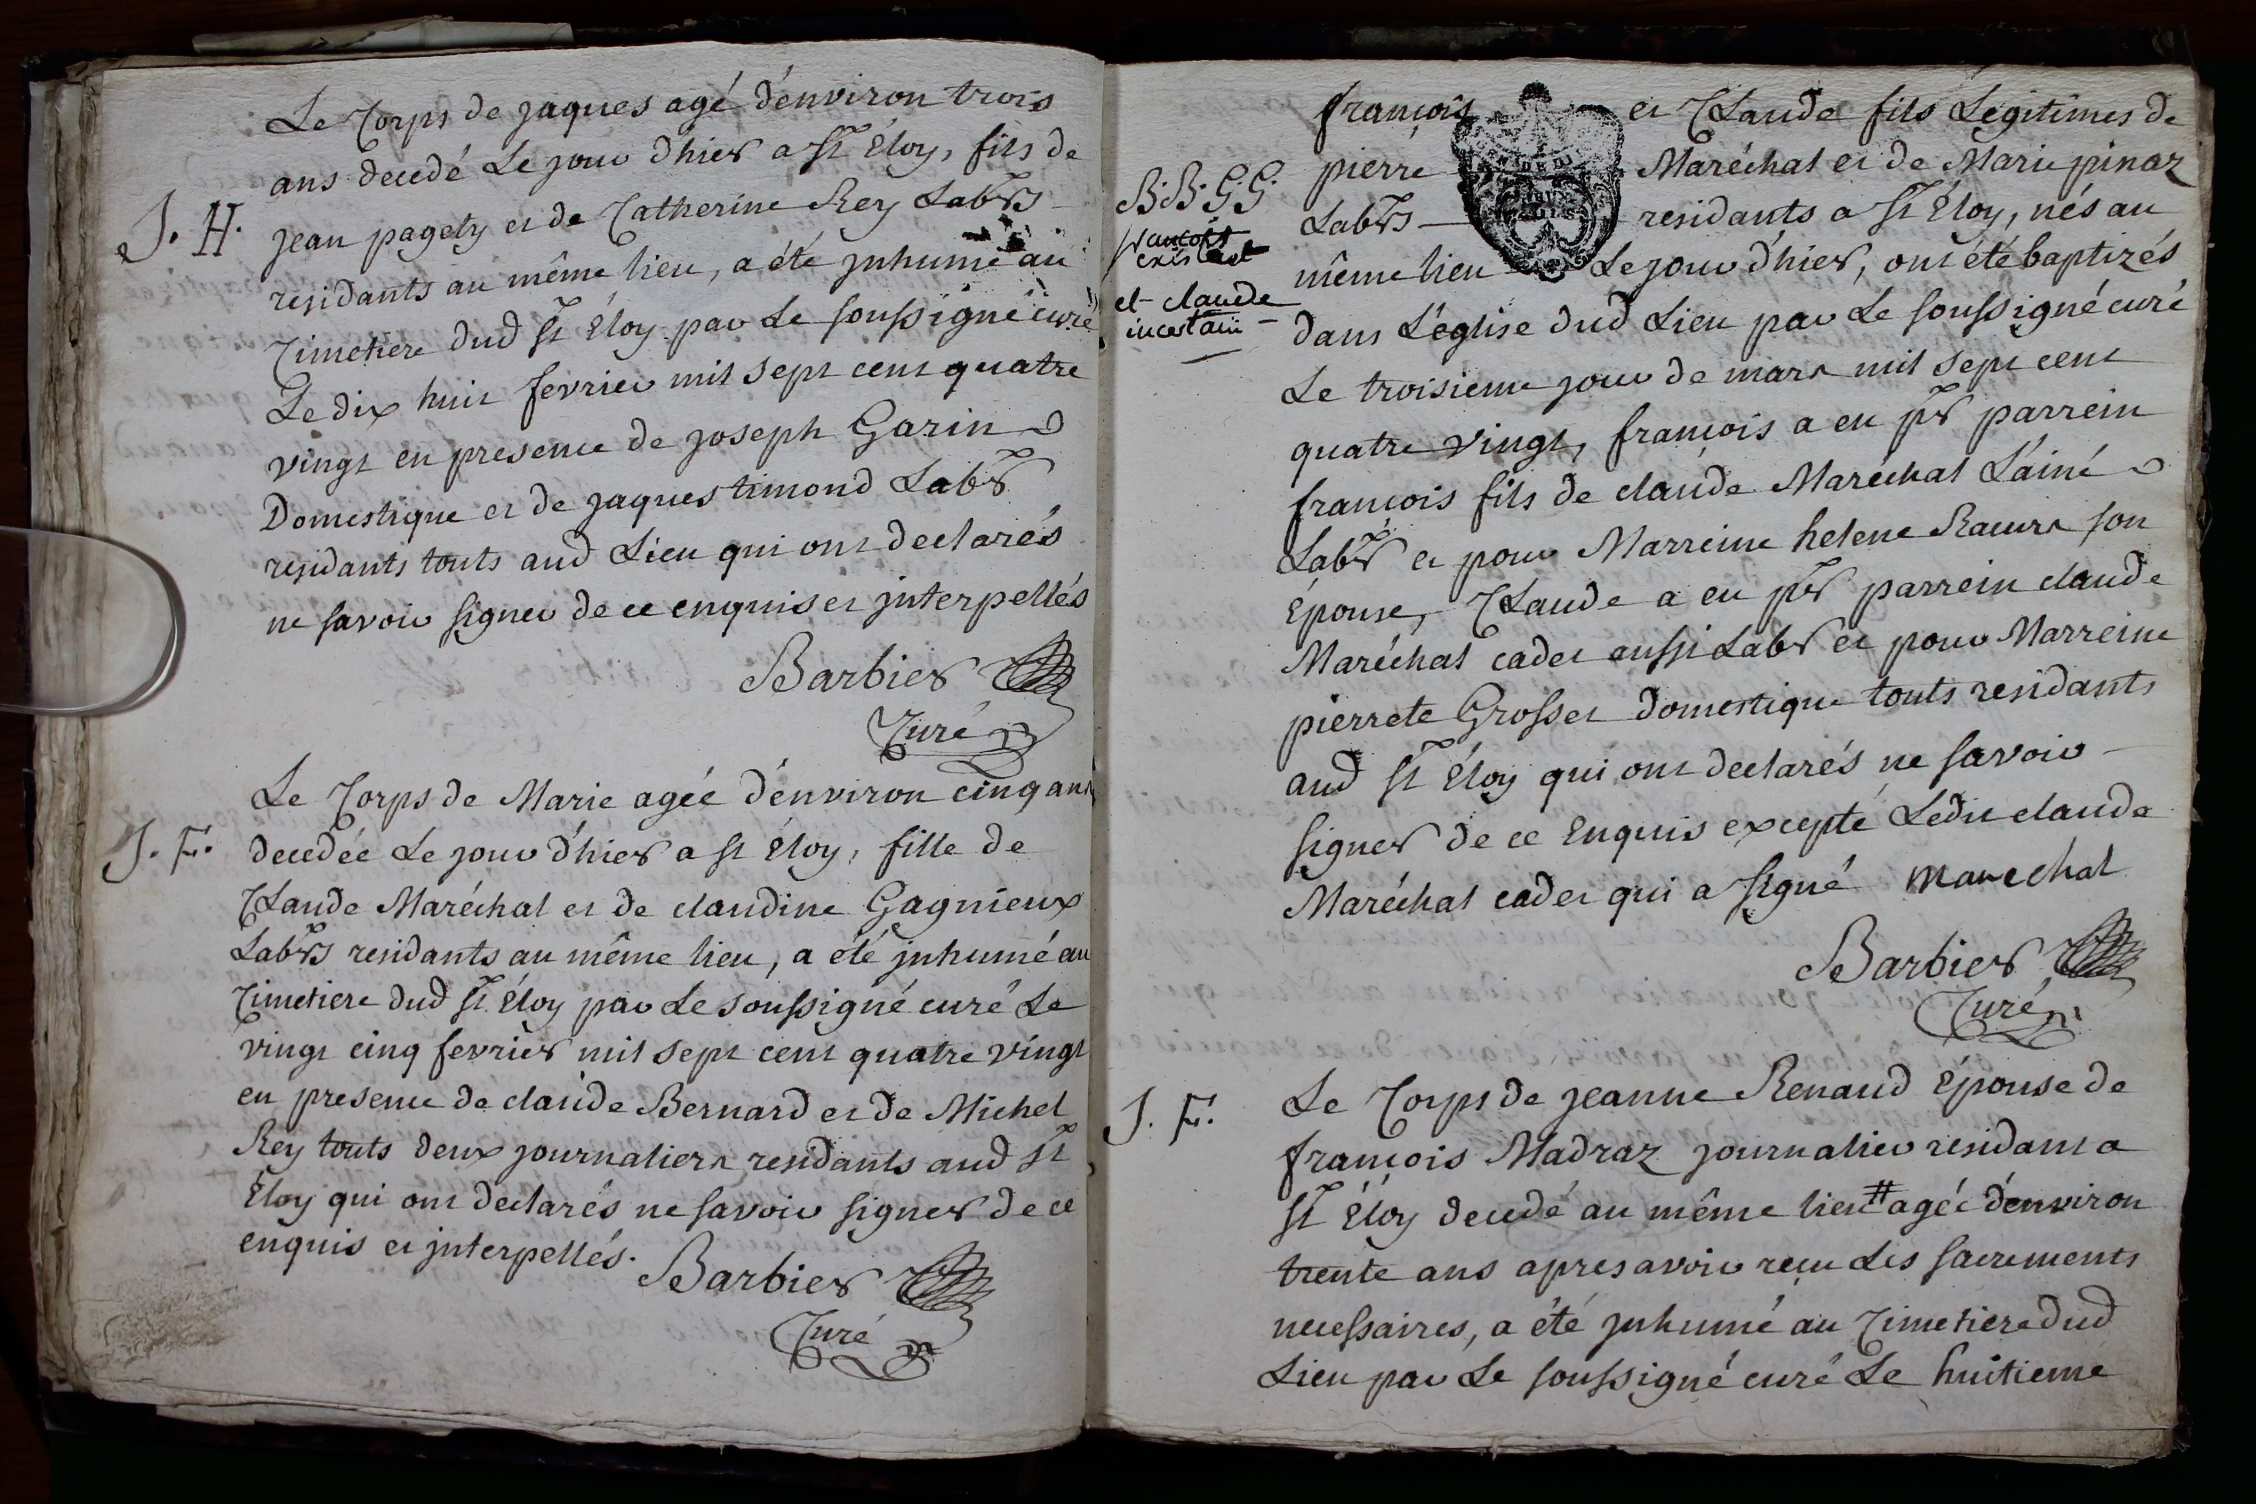 Le Corps de jaques agé d'environ trois
ans decedé Le jour d'hier a St Éloy, fils de
J. H.
jean pagety et de Catherine Rey Labrs
residants au même lieu, a été jnhumé au
Cimetiere dud St Éloy par Le soussigné curé
Le dix huit fevrier mil sept cent quatre
vingt en presence de joseph Garin
Domestique et de jaques timond Labr
residants touts aud Lieu qui ont declarés
ne savoir signer de ce enquis et jnterpellés
Barbier
Curé
Le Corps de Marie agée d'environ cinq ans
J. F.
decedée Le jour d'hier a St Éloy, fille de
Claude Maréchal et de claudine Gagnieux
Labrs residants au même lieu, a été jnhumé au
Cimetiere dud St Éloy par Le soussigné curé Le
vingt cinq fevrier mil sept cent quatre vingt
en presence de claude Bernard et de Michel
Rey touts deux journaliers residants aud St
Éloy qui ont declarés ne savoir signer de ce
enquis et jnterpellés.
Barbier
Curé
françois et Claude fils Légitimes de
pierre Maréchal et de Marie pinaz
B. B. G. G.
françois
existant
et claude
incertain
Labrs residants a St Éloy, nés au
même lieu Le jour d'hier, ont été baptizés
dans L'église dud Lieu par Le soussigné curé
Le troisieme jour de mars mil sept cent
quatre vingt, françois a eu pr parrein
françois fils de claude Maréchal L'ainé
Labr et pour Marreine helene son
Épouse, Claude a eu pr parrein claude
Maréchal cadet aussi Labr et pour Marreine
pierrete Grosset domestique touts residants
aud St Éloy qui ont declarés ne savoir
signer de ce Enquis excepté Ledit claude
Maréchal cadet qui a signé marechal
Barbier
Curé
J. F.
Le Corps de jeanne Renaud Épouse de
françois Madraz journalier residant a
St Éloy decedé au même lieu # agée d'environ
trente ans apres avoir reçu Les sacrements
necessaires, a été jnhumé au Cimetiere dud
Lieu par Le soussigné curé Le huitieme